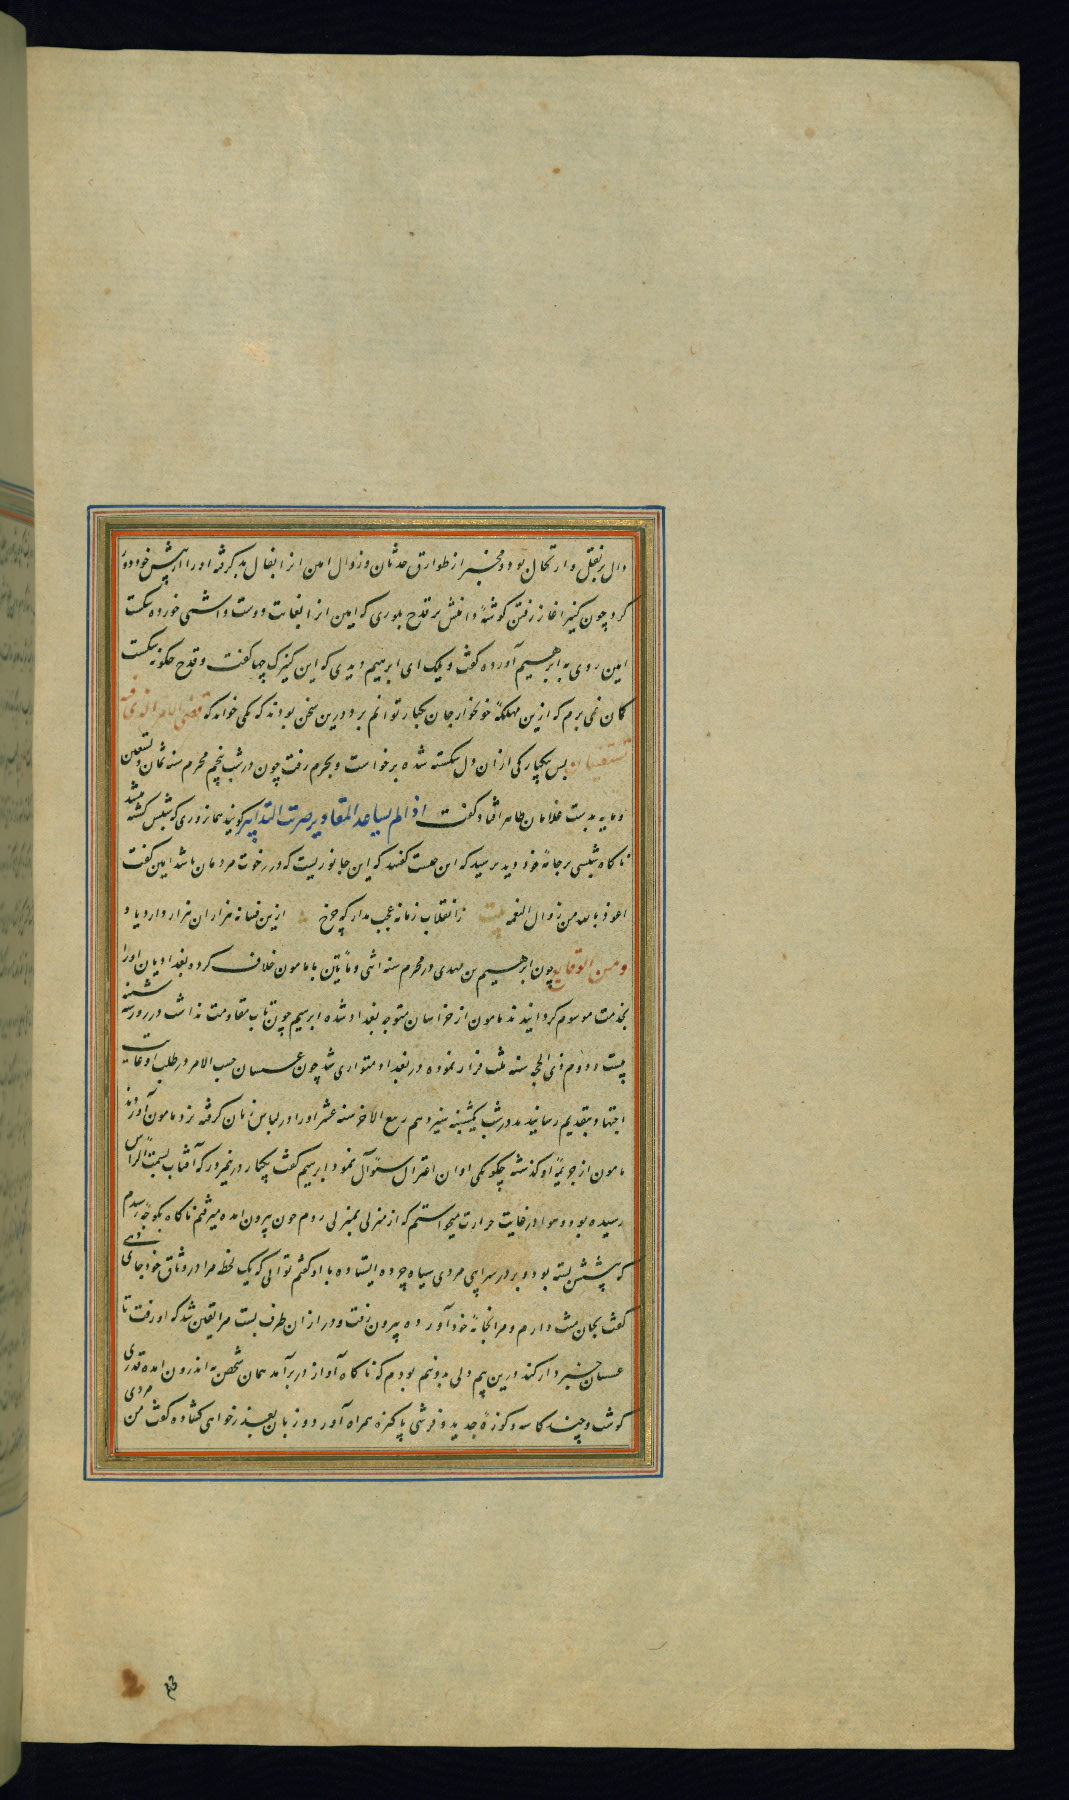 دال بر نقل و ارتحال بود و مخبر از طوارق حدثان و زوال امین از انفال بد گرفته او را از پیش خود دور
کرد چون کنیز آغاز رفتن کرد گوشهٔ دامنش بر قدح بلوری که امین از انغایت دوست داشتی خورده شکست
امین روی به ابرهیم آورده گفت ویحک ای ابرهیم دیدی که این کنیزک چها گفت و قدح چگونه شکست
کمان نمی برم که ازین مهلکهٔ خونخوار جان بکنار توانم برد درین سخن بودند که یکی خواند که قضی الامر الذی فیه
تستفتیان پس یکبارگی از ان دل شکسته شده برخواست و بحرم رفت چون در شب پنجم محرم سنه ثمان و تسعین
و مایه بدست غلامان طاهر افتاد گفت اذا لم یساعد المقادیر صرت التدابیر گویند همانروزی که شبش کشته میشد
ناکاه شپشی بر جامهٔ خود دید پرسید که این چیست گفتند که این جانوریست که در رخوت مردمان باشد امین گفت
اعوذ بالله من زوال النعمه بیت ز انقلاب زمانه عجب مدار که چرخ ازین فسانه هزاران هزار دارد یاد
و من الوقایع چون ابرهیم بن مهدی در محرم سنه اثنی و مأیتین با مامون خلاف کرده بغدادیان او را
بخدمت موسوم کردانیدند مامون از خراسان متوجه بغداد شده ابرهیم چون تاب مقاومت نداشت در روز سه شنبه
بیست و دوم ذی الحجه سنه ثلث فرار نموده در بغداد متواری شد چون عسسان حسب الامر در طلب او غایت
اجتهاد بتقدیم رسانیدند در شب یکشنبه سیزدهم ربیع الاخر سنه عشر او را در لباس زنان کرفته نزد مامون آوردند
مامون از جریمهٔ او گذشته چگونگی اوان اعتزال سؤال نمود ابرهیم گفت یکبار در نیمروز که آفتاب بسمت الراس
رسیده بود و هوا در غایت حرارت میخواستم که از منزلی بمنزلی روم چون بیرون امده میرفتم ناکاه بکوچهٔ رسیدم
که پیشش بسته بود و بر در سرایی مردی سیاه چرده ایستاده با او گفتم توانی که یک لحظه مرا در وثاق خود جای دهی
گفت بجان منت دارم و مرا بخانهٔ خود آورده بیرون رفت و در از ان طرف بست مرا یقین شد که او رفت تا
عسسان خبردار کند درین بیم دلی بدونیم بودم که ناکاه آواز در برآمد همان شخص به اندرون امده قدری
گوشت و چند کاسه و کوزهٔ جدید و فرشی پاکیزه همراه آورد و زبان بعذرخواهی کشاده گفت من مردی